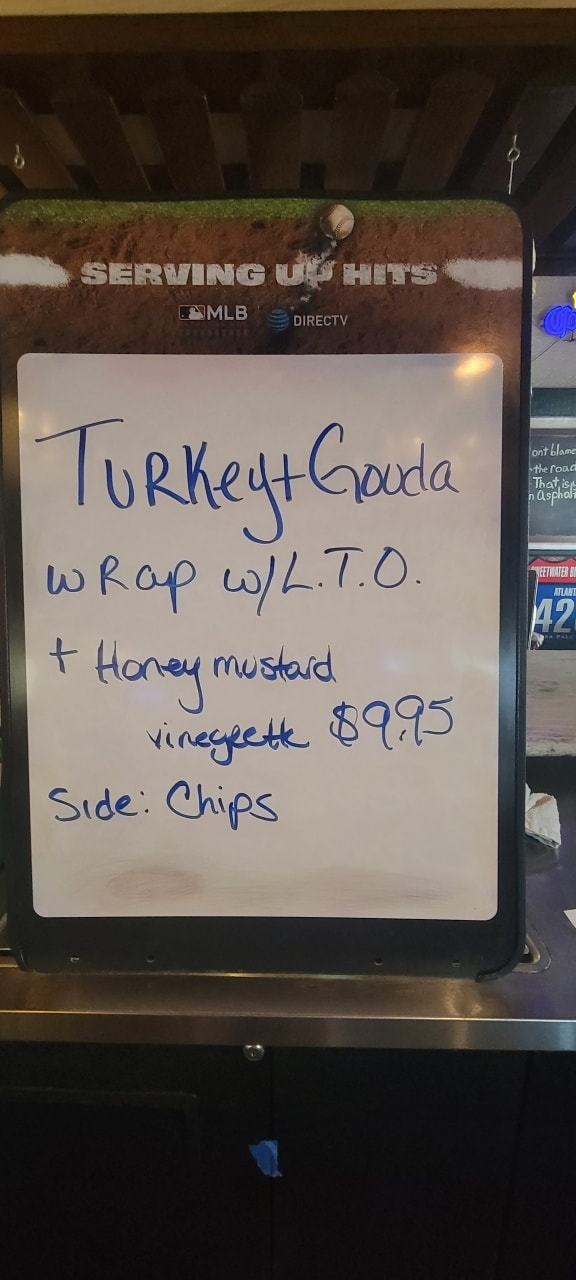 SERVING UP HITS
MLB DIRECTV
Turkey + Gouda
wrap w/L.T.O.
+ Honey mustard
vinegrette $9.95
Side: Chips
ont blame
the road
That is
n Asphalt
SWEETWATER
ATLANT
420